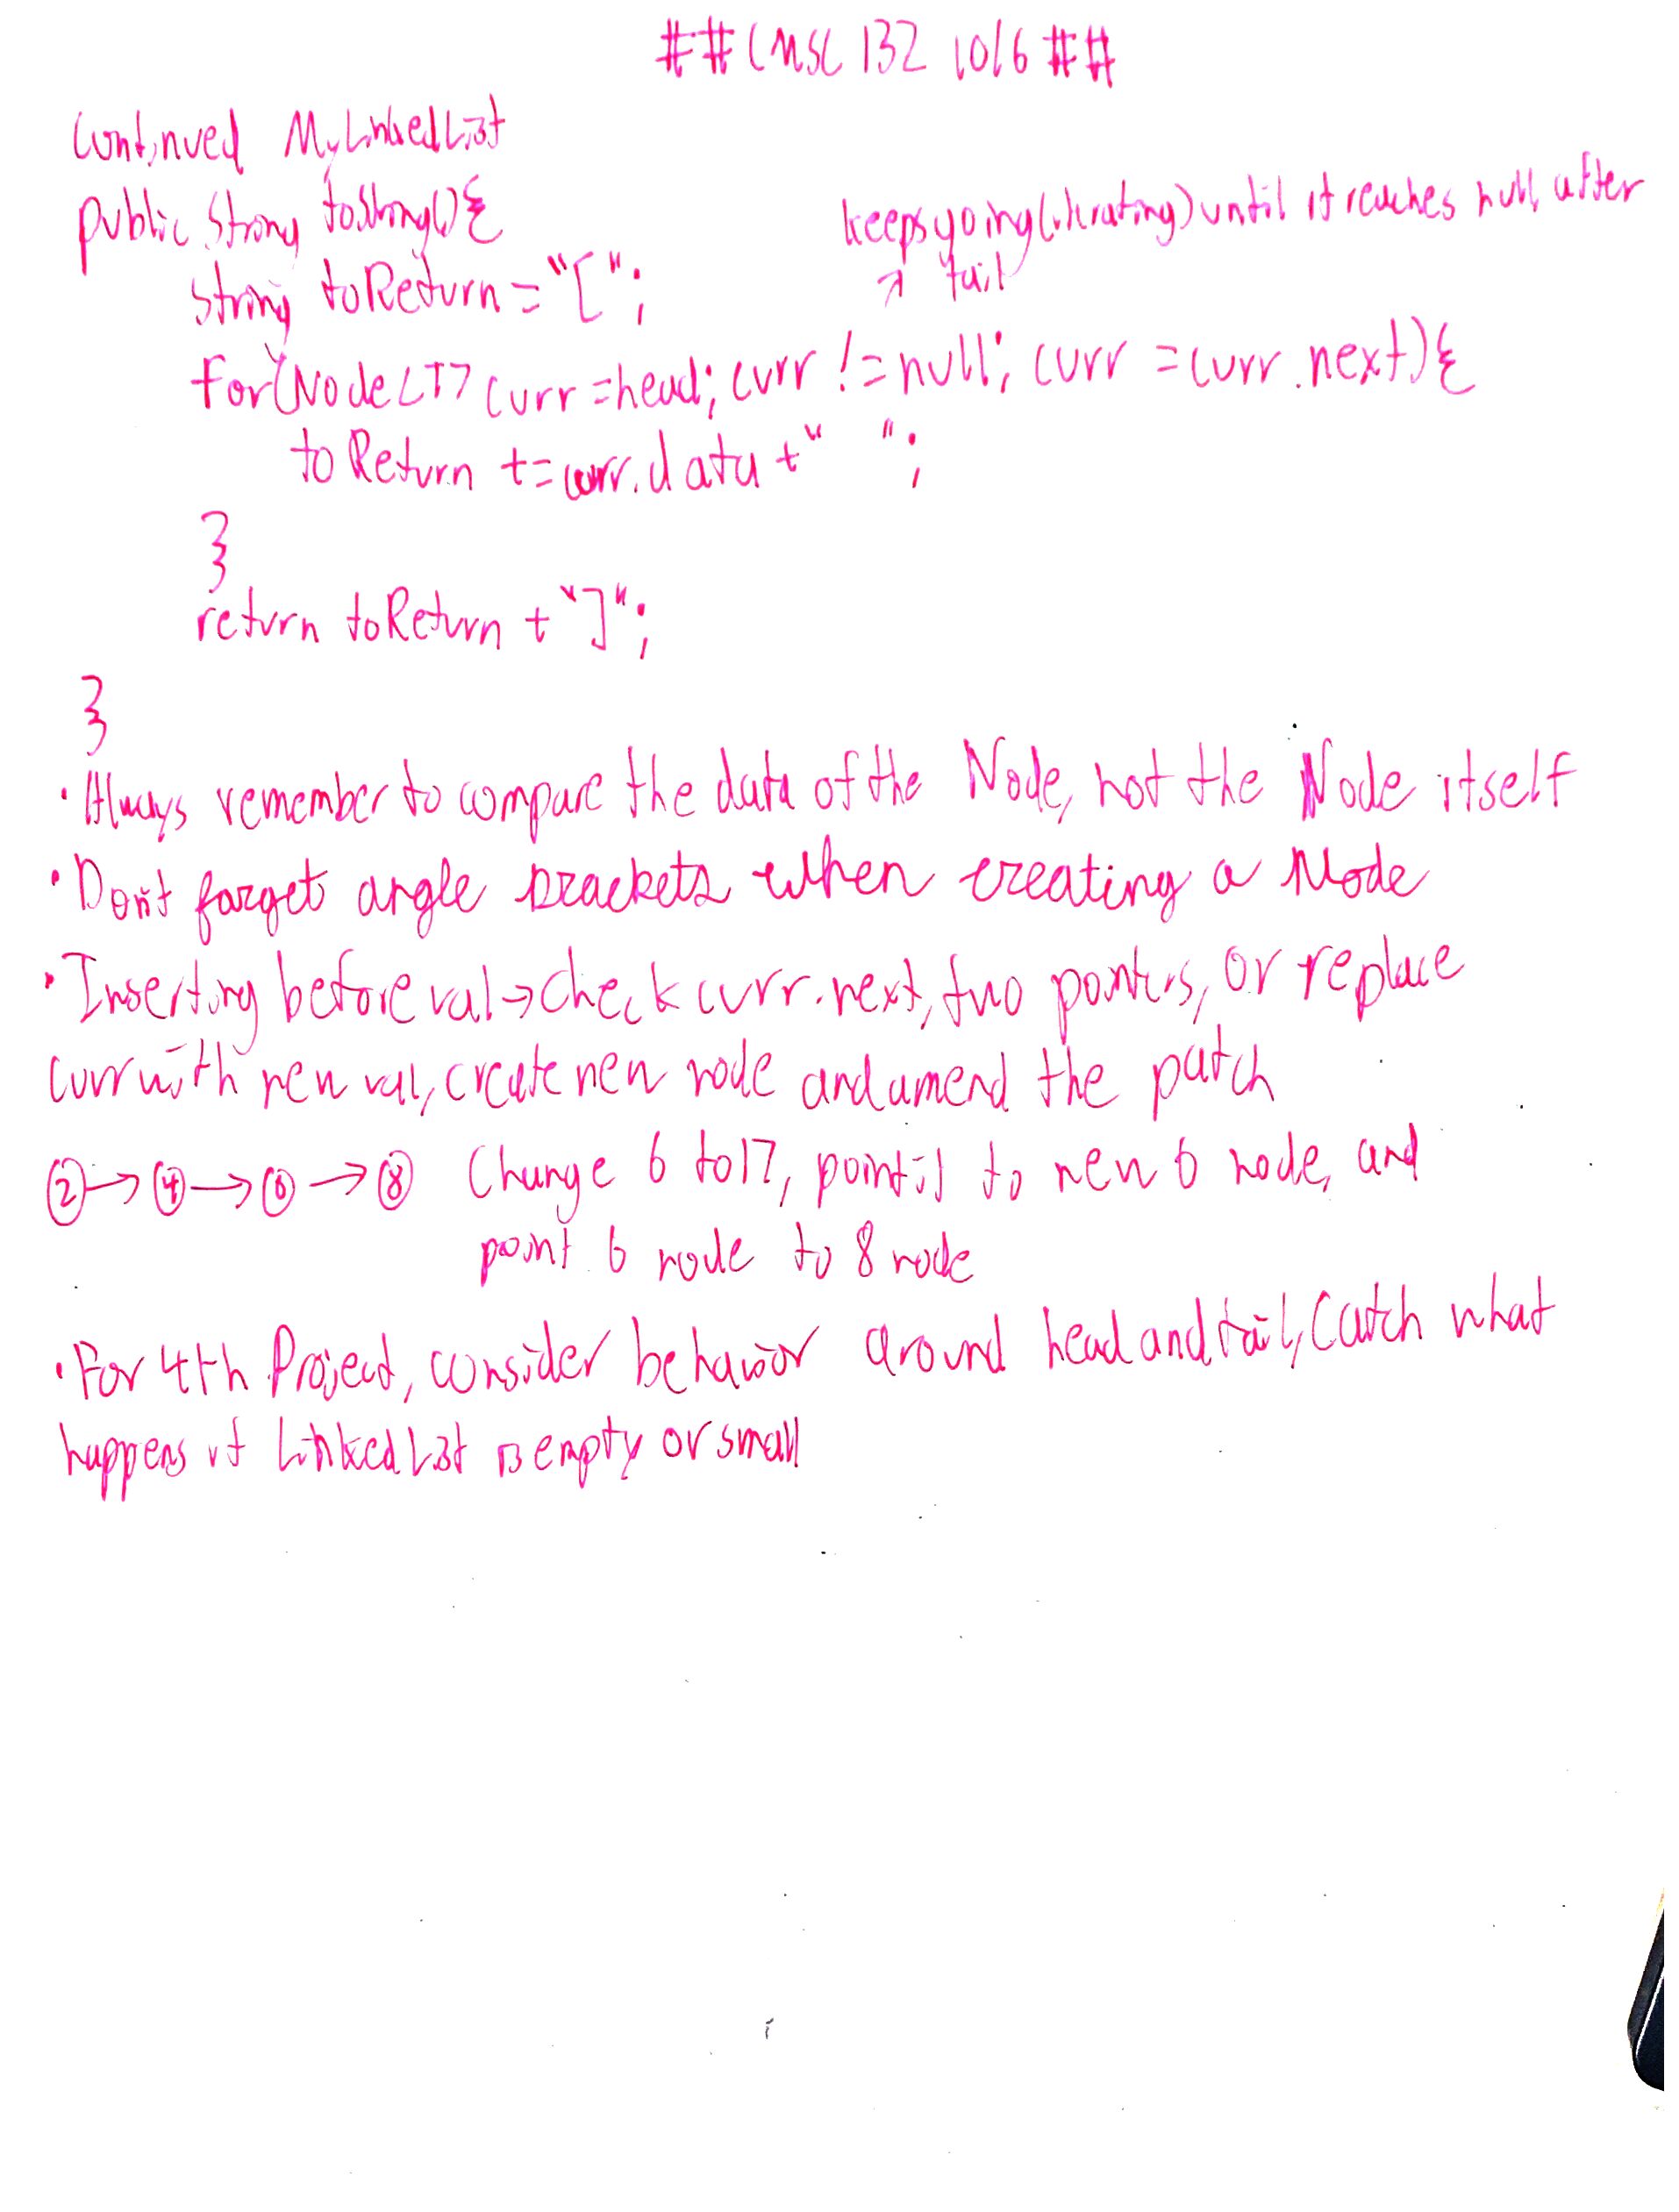 ##CMSC 132 10/6 ##
Continued MyLinkedList
public String toString(){
keeps going(iterating) until it reaches null after
tail
String toReturn = "[";
for(Node<T> curr = head; curr != null; curr = curr.next){
toReturn += curr.data + " ";
}
return toReturn + "]";
}
• Always remember to compare the data of the Node, not the Node itself
• Don't forget angle brackets when creating a Node
• Inserting before val → check curr.next, two pointers, or replace
curr with new val, create new node and amend the patch
2 → 4 → 6 → 8 Change 6 to 17, point it to new 6 node, and
point 6 node to 8 node
• For 4th Project, consider behavior around head and tail, Catch what
happens if LinkedList is empty or small